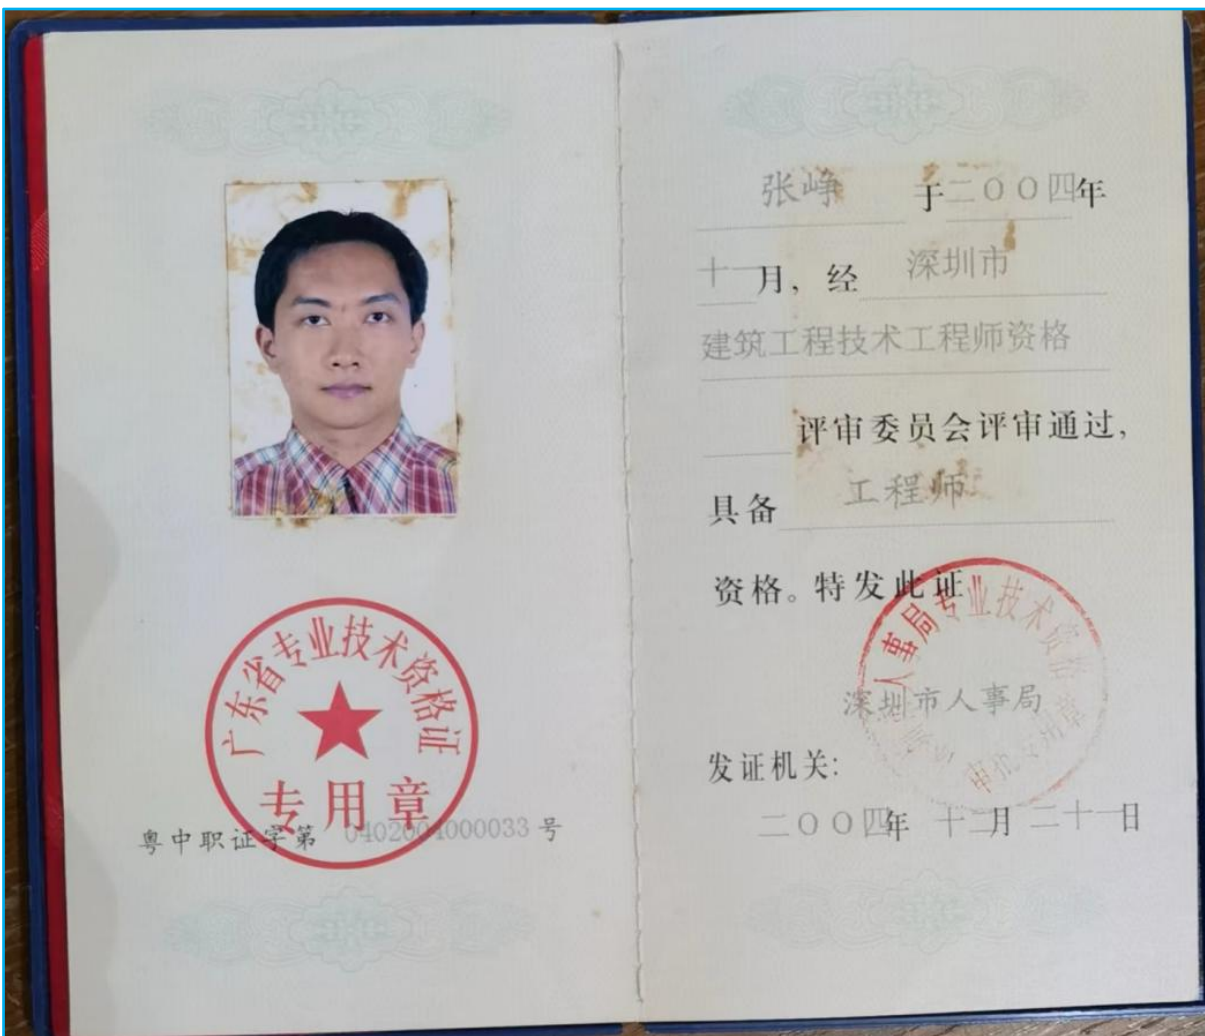 广东省专业技术资格证
专用章
粤中职证字第 0402004000033 号
张峥 于二〇〇四年
十一月，经 深圳市
建筑工程技术工程师资格
评审委员会评审通过，
具备 工程师
资格。特发此证
人事局专业技术资格
深圳市人事局
发证机关：
二〇〇四年 十二月 二十一日